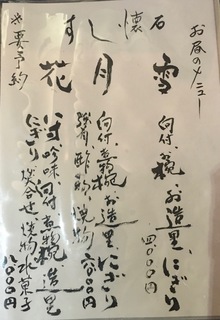 お昼のメニュー
懐石
雪
向付、椀、お造里、にぎり
四〇〇〇円
すし
月
向付、煮物椀、お造里、にぎり
強肴、酢物、焼物
六〇〇〇円
花
八寸、吟味、向付、煮物椀、造里
にぎり、炊合せ、焼物、水菓子
八〇〇〇円
※要予約